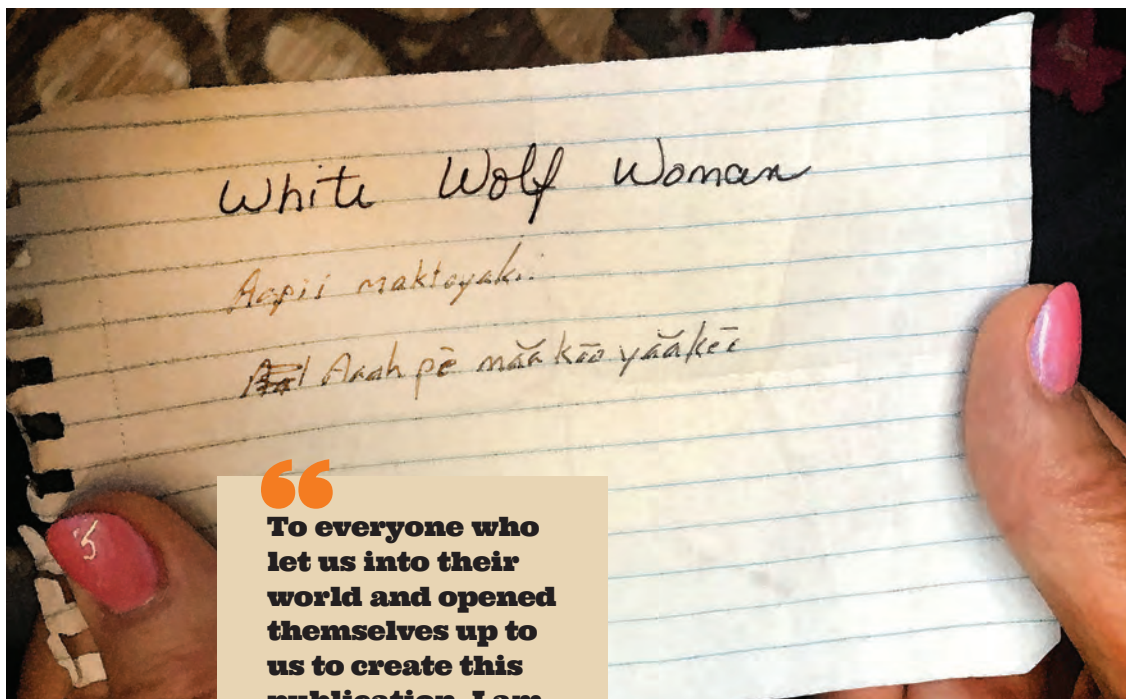 White Wolf Woman
Aapii maktoyaki
Aaah pē măă kōō yăăkēē
“
To everyone who
let us into their
world and opened
themselves up to
us to create this
publication, I am